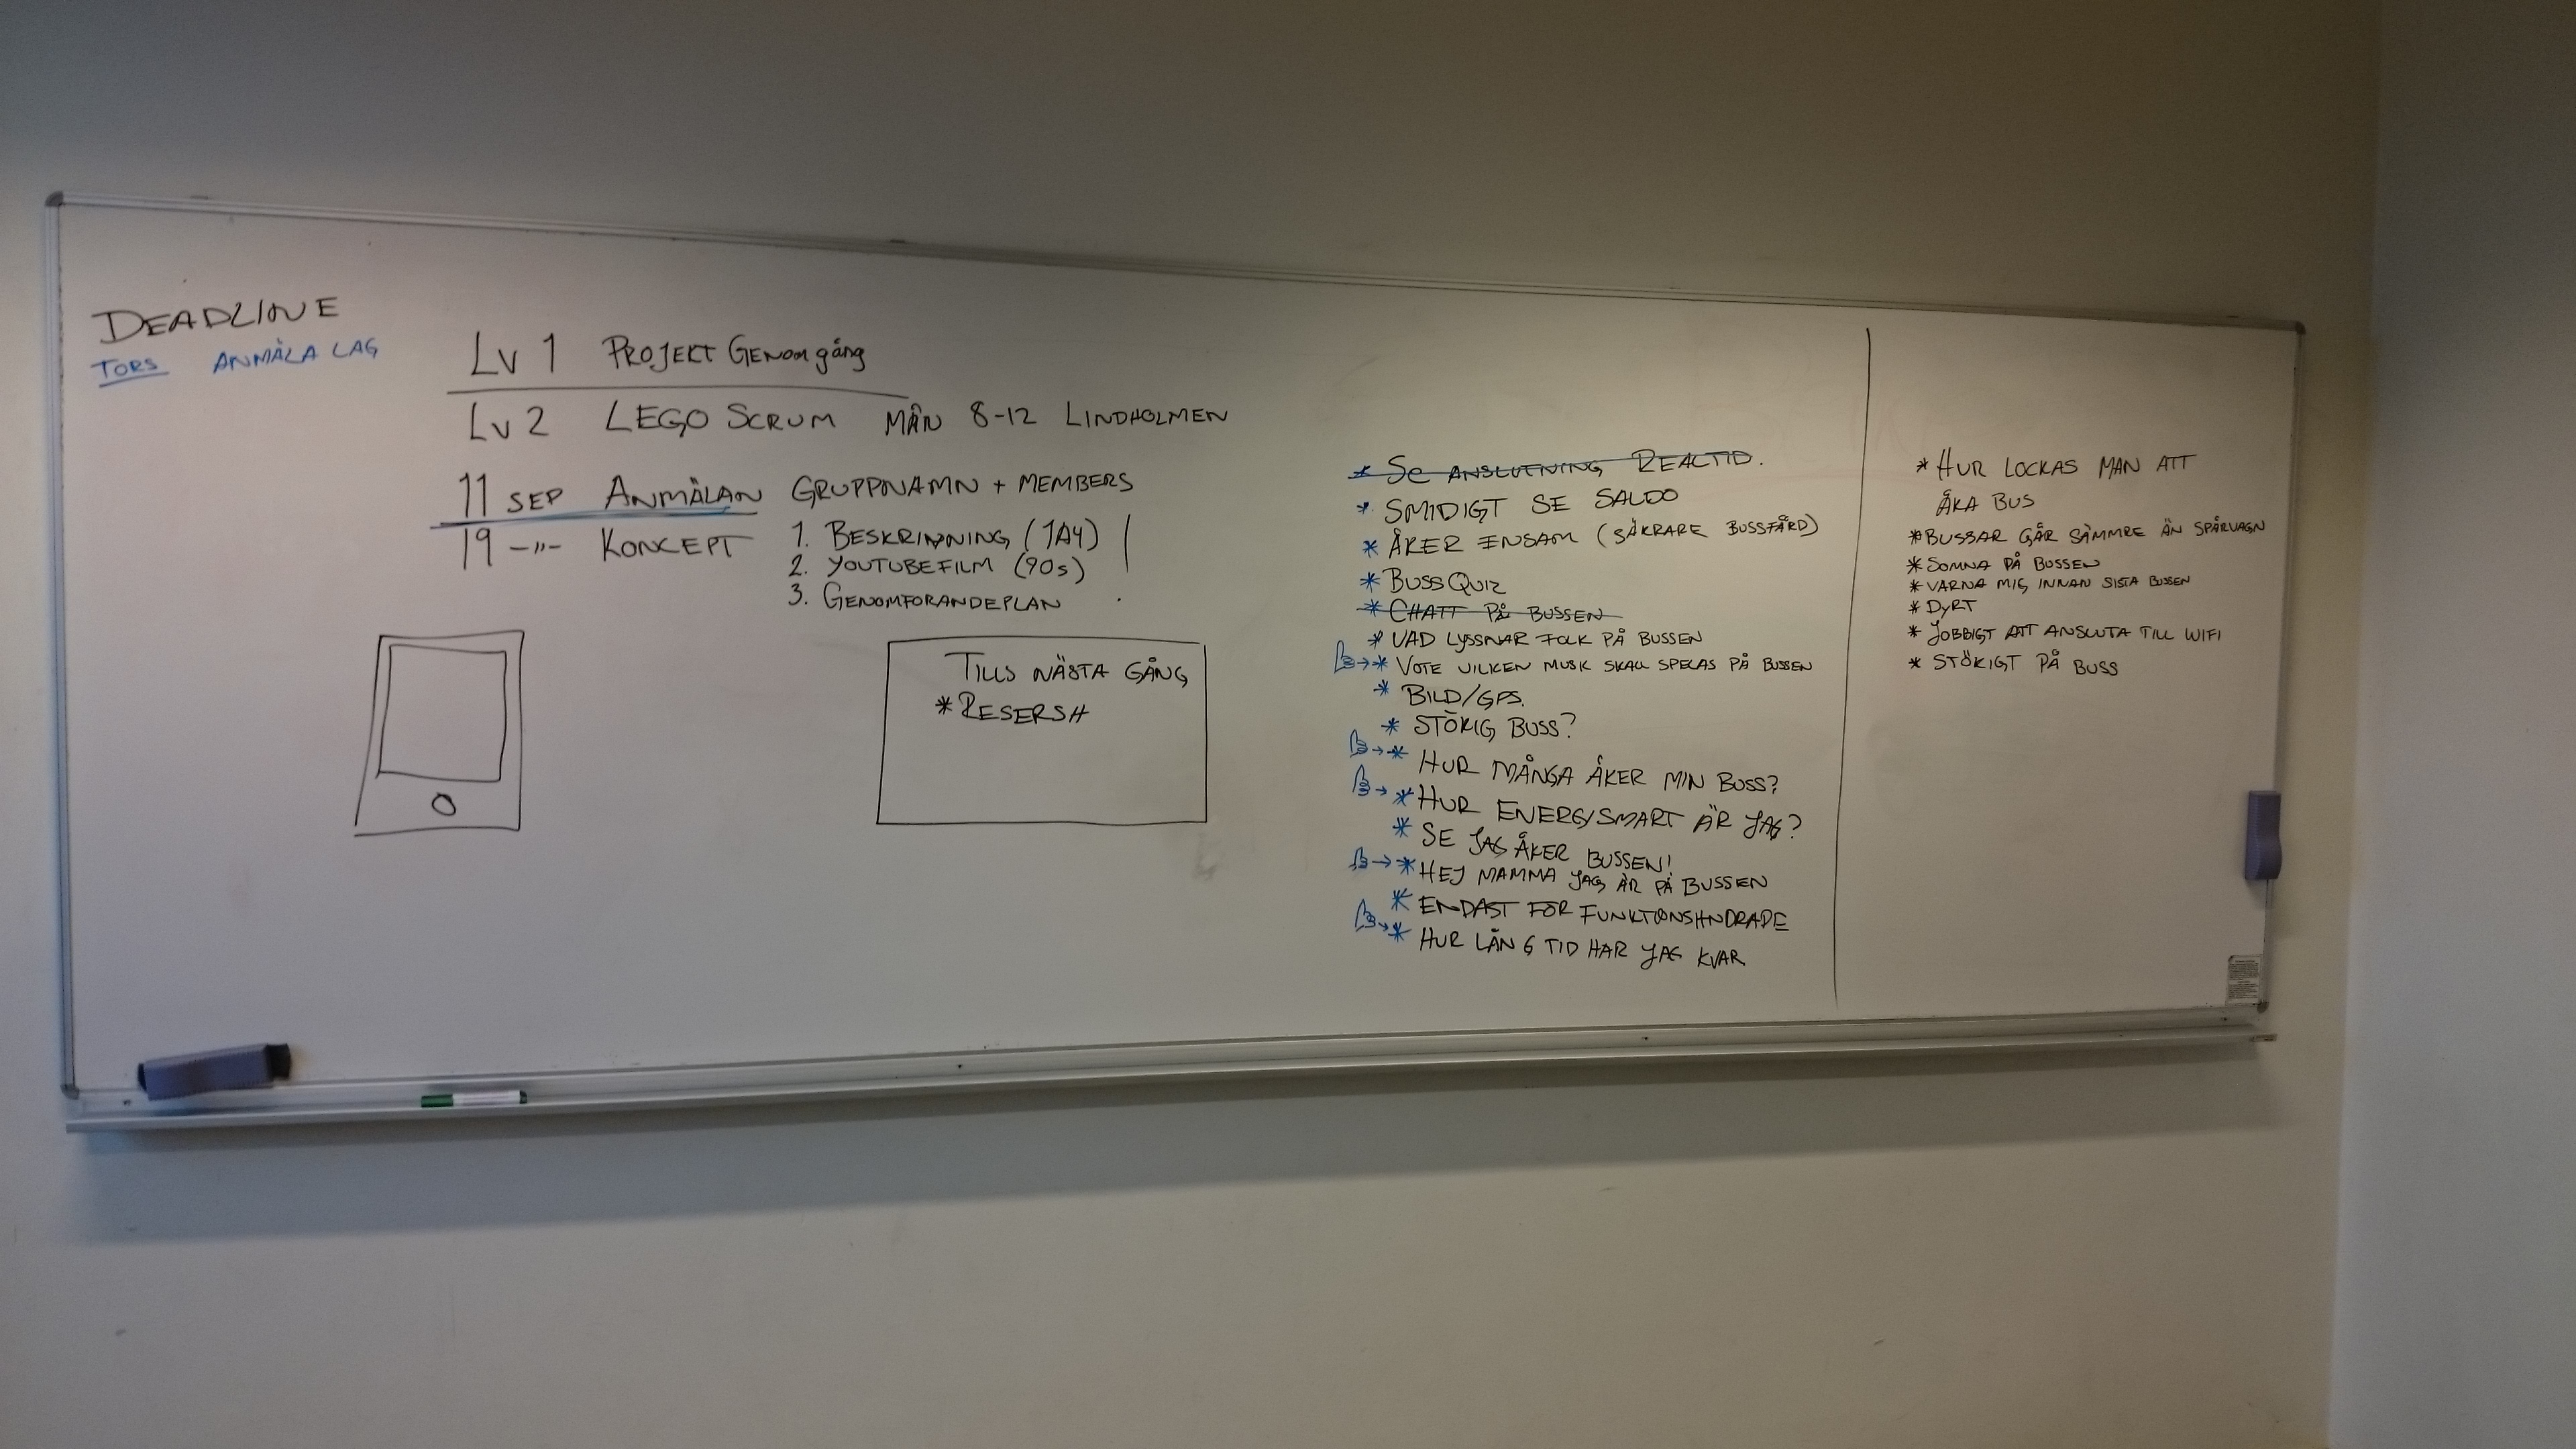 DEADLINE
TORS ANMÄLA LAG
LV 1 PROJEKT GENOMgång
LV 2 LEGO SCRUM MÅN 8-12 LINDHOLMEN
11 SEP ANMÄLAN GRUPPNAMN + MEMBERS
19 -"- KONCEPT 1. BESKRIVNING (1A4)
2. YOUTUBEFILM (90s)
3. GENOMFORANDEPLAN
TILLS NÄSTA GÅNG
* RESERSH
* Se ANSLUTNING REALTID.
* SMIDIGT SE SALDO
* ÅKER ENSAM (SÄKRARE BUSSFÄRD)
* BUSS QUIZ
* CHATT PÅ BUSSEN
* VAD LYSSNAR FOLK PÅ BUSSEN
→* VOTE VILKEN MUSIK SKALL SPELAS PÅ BUSSEN
* BILD/GPS.
* STÖKIG BUSS?
→* HUR MÅNGA ÅKER MIN BUSS?
→* HUR ENERGISMART ÄR JAG?
* SE JAG ÅKER BUSSEN!
→* HEJ MAMMA JAG ÄR PÅ BUSSEN
* ENDAST FÖR FUNKTIONSHNDRADE
→* HUR LÅNG TID HAR JAG KVAR
* HUR LOCKAS MAN ATT
ÅKA BUS
* BUSSAR GÅR SÄMMRE ÄN SPÅRVAGN
* SOMNA PÅ BUSSEN
* VARNA MIG INNAN SISTA BUSSEN
* DYRT
* JOBBIGT ATT ANSLUTA TILL WIFI
* STÖKIGT PÅ BUSS